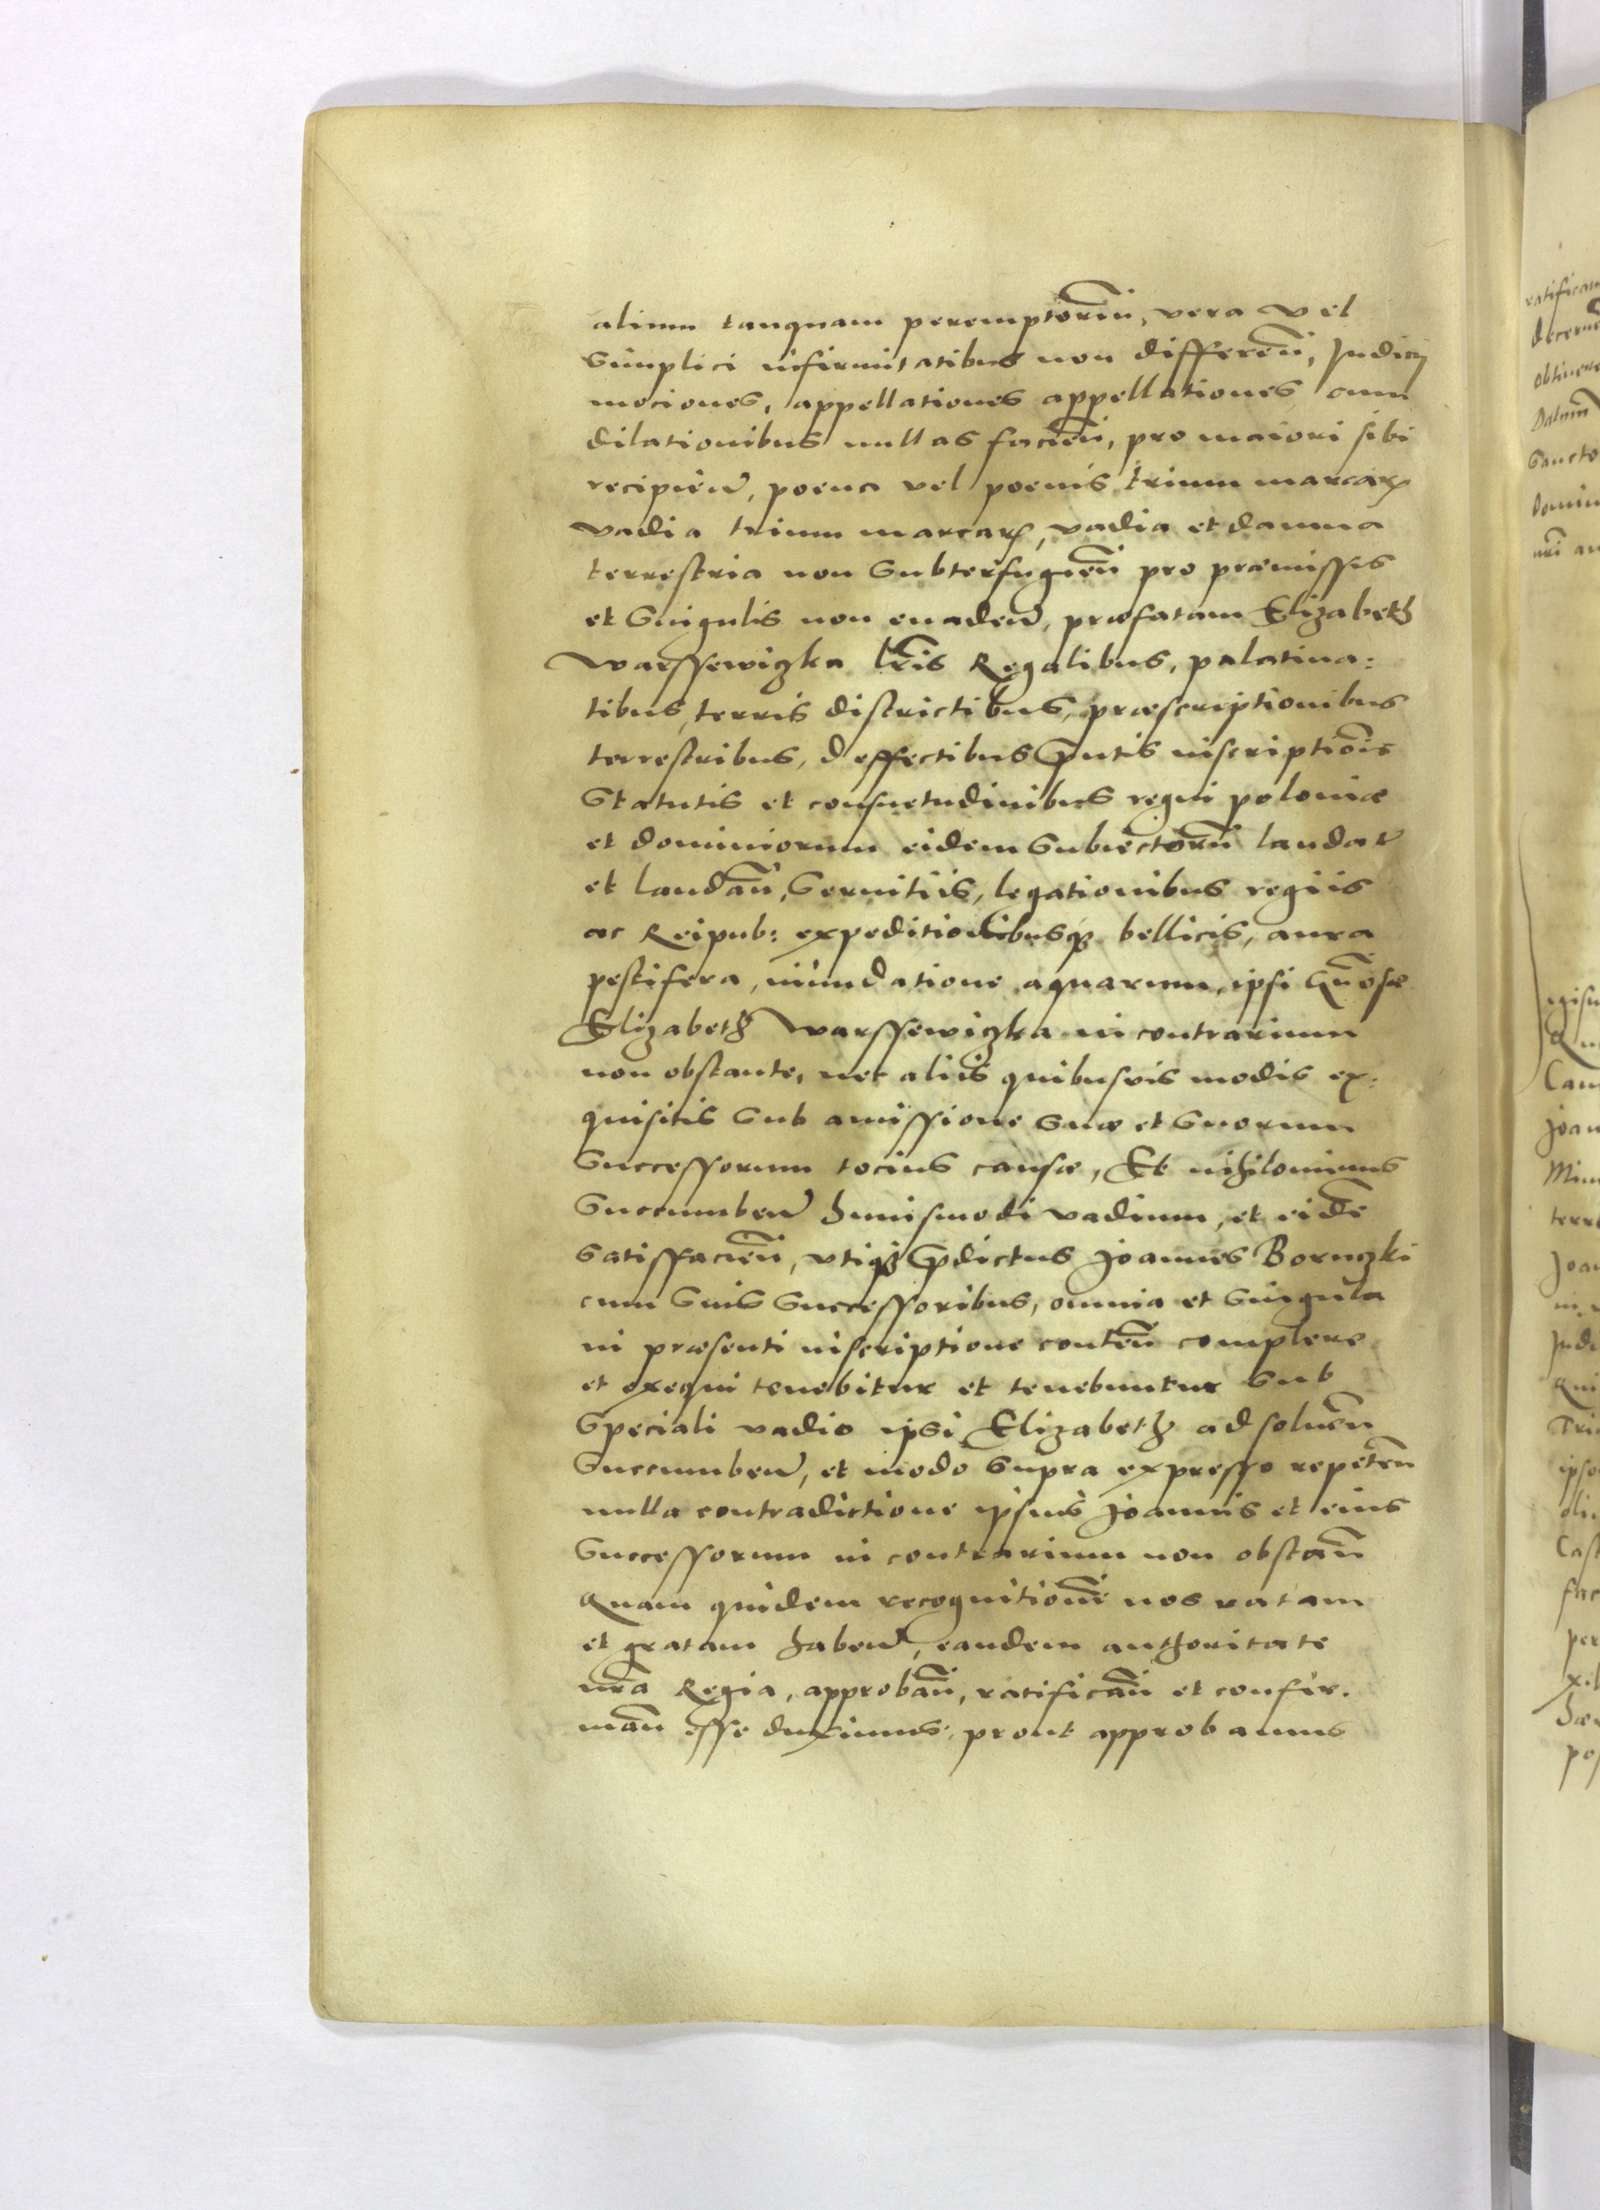 alium tanquam peremptoriũ, vera vel
simplici infirmitatibus non differeñ, Judicij
mociones, appellationes appellationes cum
dilationibus nullas facieñ, pro maiori sibi
recipieñ, poena vel poenis trium marcarꝝ
vadia trium marcarꝝ, vadia et damna
terrestria non subterfugieñ pro præmissis
et singulis non euadeñ, præfatam Elizabeth
Warssewiczka lr̃is Regalibus, palatina:
tibus, terris districtibus, præscriptionibus
terrestribus, deffectibus p̃ntis inscriptiõis
statutis et consuetudinibus regni poloniæ
et dominiorum eidem subiectorũ laudat
et laudañ, seruitiis, legationibus regiis
ac Reipub: expeditionibusqȝ bellicis, aura
pestifera, inundatione aquarum, ipsi
Elizabeth Warssewiczka in contrarium
non obstante, nec aliis quibusvis modis ex:
quisitis sub amissione suæ et suorum
successorum tocius causæ, Et nihilominus
succumbeñ huiusmodi vadium, et eidẽ
satisfacieñ, vtiqȝ p̃dictus Joannes Bornczki
cum suis successoribus, omnia et singula
in præsenti inscriptione conteñ complere
et exequi tenebitur et tenebuntur sub
speciali vadio ipsi Elizabeth ad solueñ
succumbeñ, et modo supra expresso repeteñ
nulla contradictione ipsius Joannis et eius
successorum in contrarium non obstañ
Quam quidem recognitionẽ nos ratam
et gratam habeñ, eandem authoritate
nr̃a Regia, approbañ, ratificañ et confir.
mañ esse duximus, prout approbamus